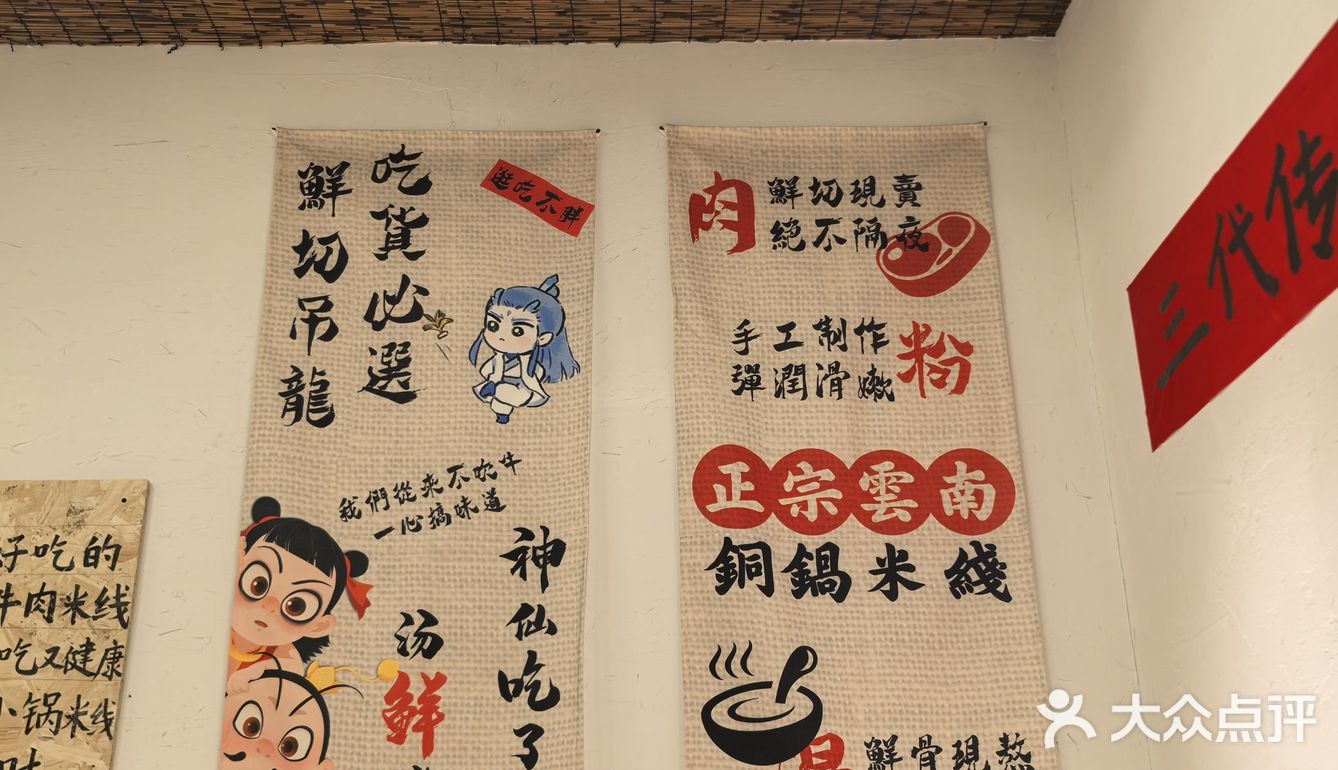 吃貨必選
鮮切吊龍
逛吃不胖
我們從來不吹牛
一心搞味道
神仙吃了
汤鮮
肉
鮮切現賣
絶不隔夜
手工制作
彈潤滑嫩
粉
正宗雲南
銅鍋米綫
鮮骨現熬
三代传
好吃的
牛肉米线
吃又健康
小锅米线
大众点评